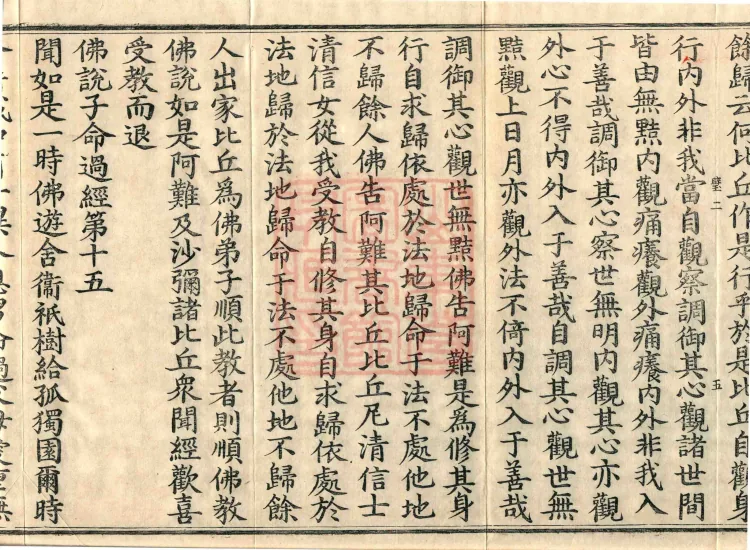 餘歸云何比丘作是行乎於是比丘自觀身
壁二 五
行内外非我當自觀察調御其心觀諸世間
皆由無黠内觀痛癢觀外痛癢内外非我入
于善哉調御其心察世無明内觀其心亦觀
外心不得内外入于善哉自調其心觀世無
黠觀上日月亦觀外法不倚内外入于善哉
調御其心觀世無黠佛告阿難是爲修其身
行自求歸依處於法地歸命于法不處他地
不歸餘人佛告阿難其比丘比丘尼清信士
清信女從我受教自修其身自求歸依處於
法地歸於法地歸命于法不處他地不歸餘
人出家比丘爲佛弟子順此教者則順佛教
佛說如是阿難及沙彌諸比丘衆聞經歡喜
受教而退
佛說子命過經第十五
聞如是一時佛遊舍衛祇樹給孤獨園爾時